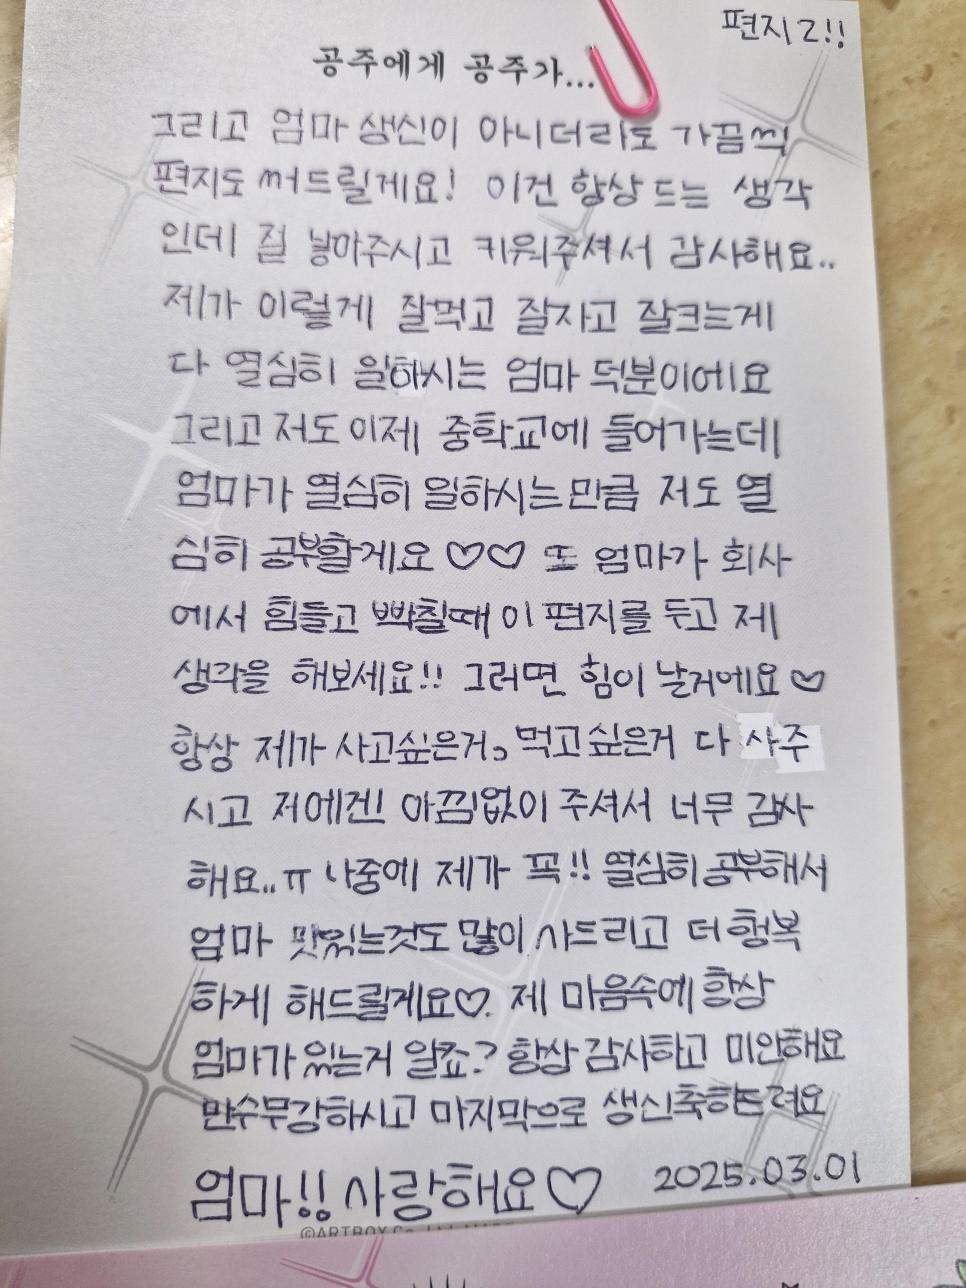 편지2!!
공주에게 공주가...
그리고 엄마 생신이 아니더라도 가끔씩
편지도 써드릴게요! 이건 항상 드는 생각
인데 절 낳아주시고 키워주셔서 감사해요..
제가 이렇게 잘먹고 잘자고 잘크는게
다 열심히 일하시는 엄마 덕분이에요
그리고 저도 이제 중학교에 들어가는데
엄마가 열심히 일하시는만큼 저도 열
심히 공부할게요♡♡ 또 엄마가 회사
에서 힘들고 빡칠때 이 편지를 두고 제
생각을 해보세요!! 그러면 힘이 날거에요♡
항상 제가 사고싶은거, 먹고싶은거 다 사주
시고 저에겐! 아낌없이 주셔서 너무 감사
해요..ㅠ 나중에 제가 꼭!! 열심히공부해서
엄마 맛있는것도 많이 사드리고 더 행복
하게 해드릴게요♡. 제 마음속에 항상
엄마가 있는거 알죠? 항상 감사하고 미안해요
만수무강하시고 마지막으로 생신축하드려요
엄마!! 사랑해요♡ 2025.03.01
©ARTBOX Co.